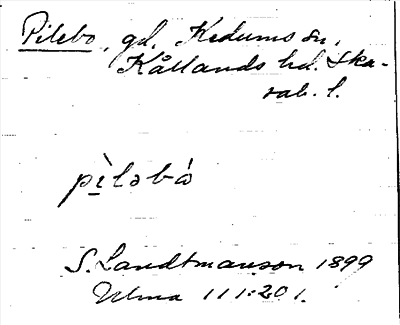 Pilebo, gd, Kedums sn,
Kållands hd. Ska-
rab. l.
pìləbȧ̀
S. Landtmanson 1899
Ulma 111:201.